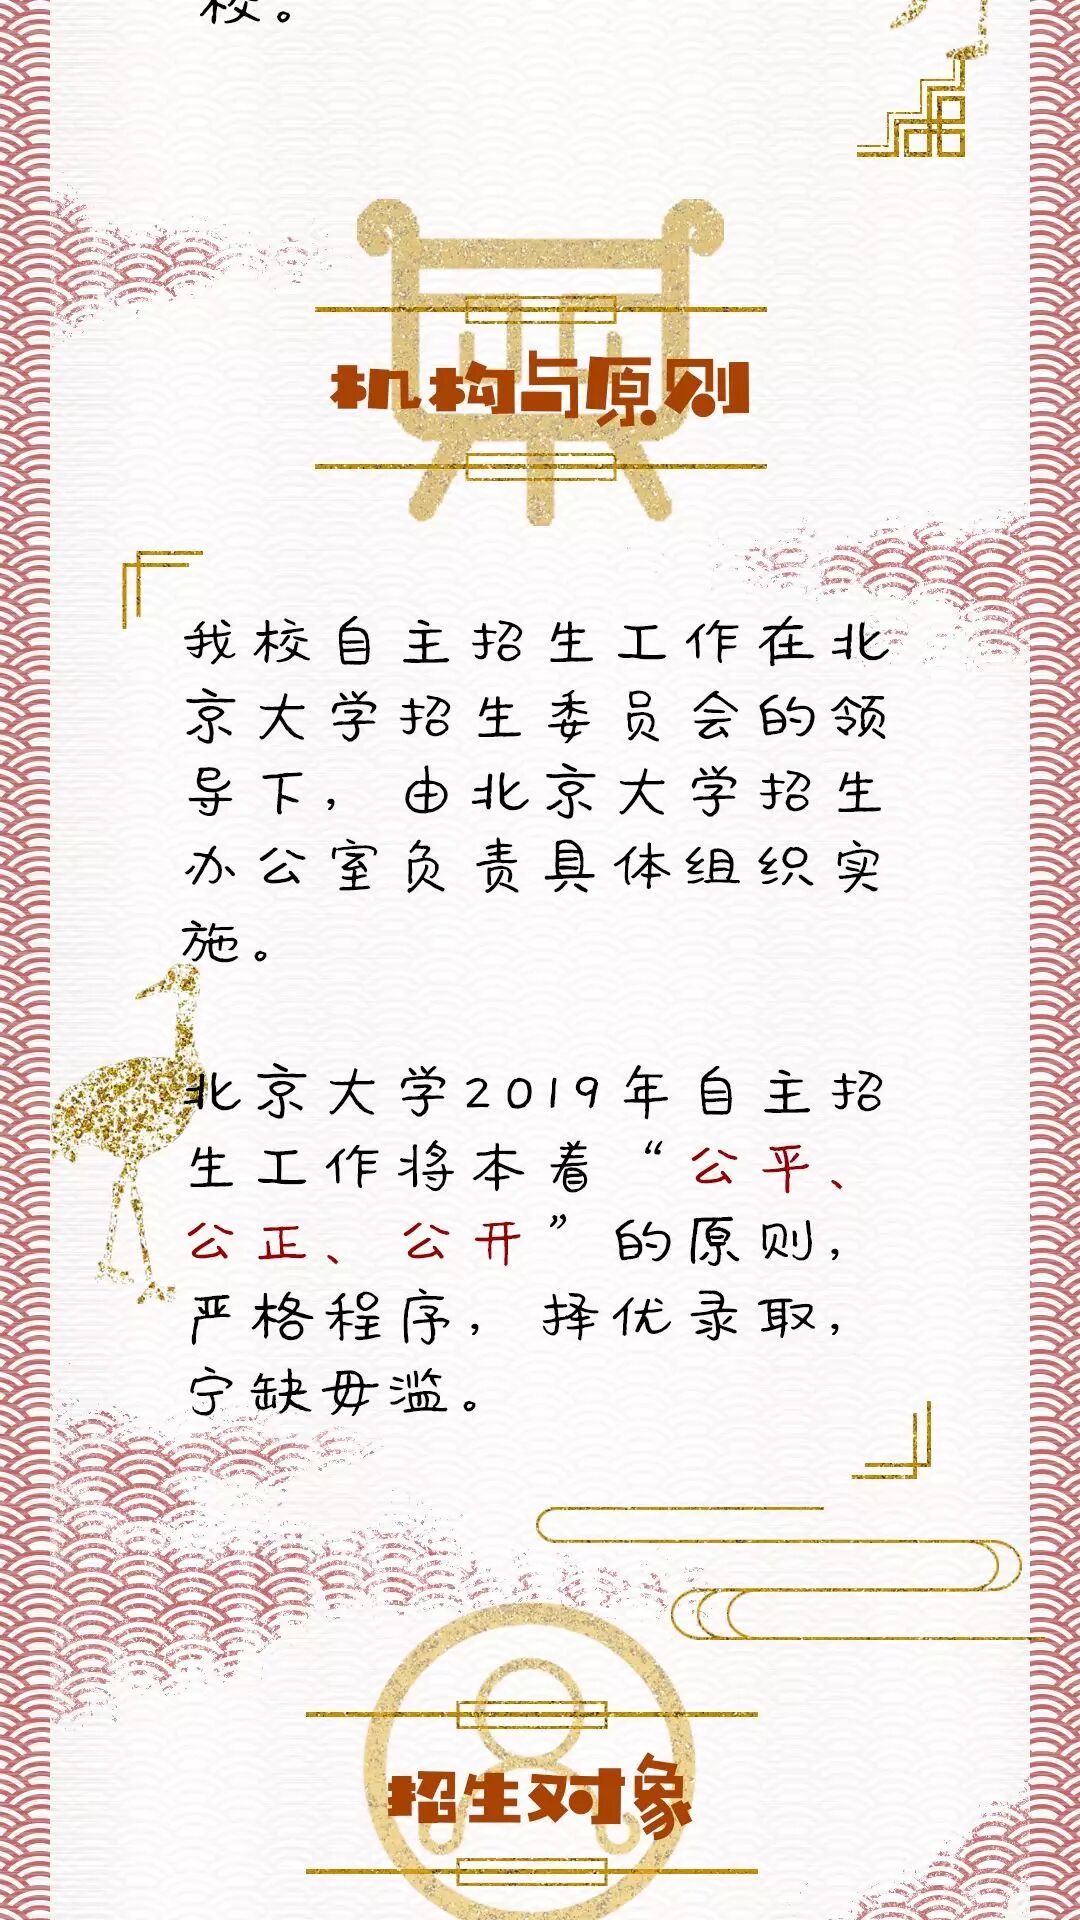 校。
机构与原则
我校自主招生工作在北
京大学招生委员会的领
导下，由北京大学招生
办公室负责具体组织实
施。
北京大学2019年自主招
生工作将本着“公平、
公正、公开”的原则，
严格程序，择优录取，
宁缺毋滥。
招生对象